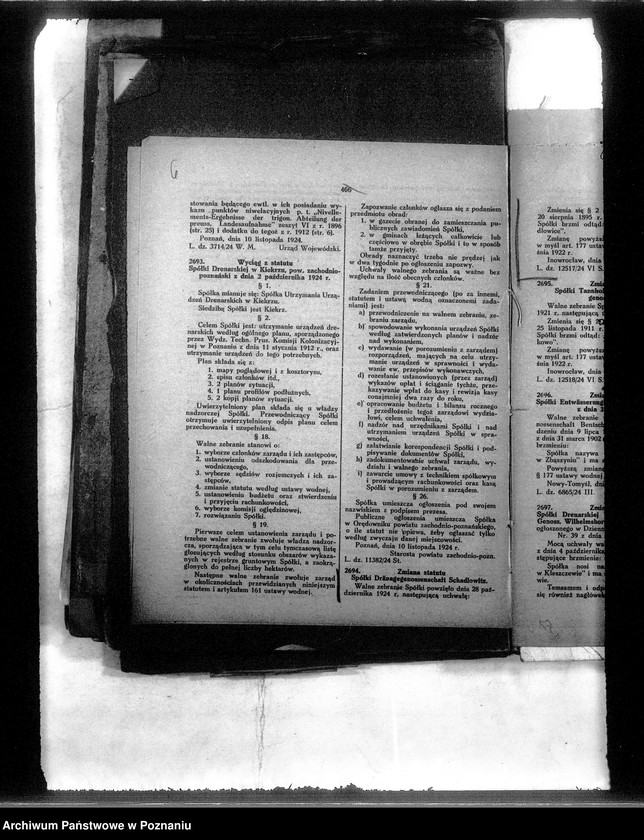 6
466
stowania będącego ewtl. w ich posiadaniu wy-
kazu „punktów niwelacyjnych p. t. „Nivelle-
ments-Ergebnisse der trigon. Abteilung der
preuss. Landesaufnahme" zeszyt VI z r. 1896
(str. 25) i dodatku do tegoż z r. 1912 (str. 6).
Poznań, dnia 10 listopada 1924.
L. dz. 3714/24 W. M. Urząd Wojewódzki.
2693. Wyciąg z statutu
Spółki Drenarskiej w Kiekrzu, pow. zachodnio-
poznański z dnia 2 października 1924 r.
§ 1.
Spółka mianuje się: Spółka Utrzymania Urzą-
dzeń Drenarskich w Kiekrzu.
Siedzibę Spółki jest Kiekrz.
§ 2.
Celem Spółki jest: utrzymanie urządzeń dre-
narskich według ogólnego planu, sporządzonego
przez Wydz. Techn. Prus. Komisji Kolonizacyj-
nej w Poznaniu z dnia 11 stycznia 1912 r., oraz
utrzymanie urządzeń do tego potrzebnych.
Plan składa się z:
1. mapy poglądowej i z kosztorysu,
2. spisu członków itd.,
3. 2 planów sytuacji,
4. 1 planu profilów podłużnych,
5. 2 kopji planów sytuacji.
Uwierzytelniony plan składa się u władzy
nadzorczej Spółki. Przewodniczący Spółki
otrzymuje uwierzytelniony odpis planu celem
przechowania i uzupełnienia.
§ 18.
Walne zebranie stanowi o:
1. wyborze członków zarządu i ich zastępców,
2. ustanowieniu odszkodowania dla prze-
wodniczącego,
3. wyborze sędziów rozjemczych i ich za-
stępców,
4. zmianie statutu według ustawy wodnej,
5. ustanowieniu budżetu oraz stwierdzenia
i przyjęciu rachunkowości,
6. wyborze komisji oględzinowej,
7. rozwiązaniu Spółki.
§ 19.
Pierwsze celem ustanowienia zarządu i po-
trzebne walne zebranie zwołuje władza nadzor-
cza, sporządzająca w tym celu tymczasową listę
głosujących według stosunku obszarów wykaza-
nych w rejestrze gruntowym Spółki, a zaokrą-
glonych do pełnej liczby hektarów.
Następne walne zebranie zwołuje zarząd
w okolicznościach przewidzianych niniejszym
statutem i artykułem 161 ustawy wodnej.
Zapozwanie członków ogłasza się z podaniem
przedmiotu obrad:
1. w gazecie obranej do zamieszczania pu-
blicznych zawiadomień Spółki,
2. w gminach leżących całkowicie lub
częściowo w obrębie Spółki i to w sposób
tamże przyjęty.
Obrady naznaczyć trzeba nie prędzej jak
w dwa tygodnie po ogłoszeniu zapozwy.
Uchwały walnego zebrania są ważne bez
względu na ilość obecnych członków.
§ 21.
Zadaniem przewodniczącego (po za innemi,
statutem i ustawą wodną oznaczonemi zada-
niami) jest:
a) przewodniczenie na walnem zebranie, ze-
braniu zarządu,
b) spowodowanie wykonania urządzeń Spółki
według zatwierdzonych planów i nadzór
nad wykonaniem,
c) wydawanie (w porozumieniu z zarządem)
rozporządzeń, mających na celu utrzy-
manie urządzeń w sprawności i wyda-
wanie ew. przepisów wykonawczych,
d) rozesłanie ustanowionych (przez zarząd)
wykazów opłat i ściąganie tychże, prze-
kazywanie wpłat do kasy i rewizja kasy
conajmniej dwa razy do roku,
e) opracowanie budżetu i bilansu rocznego
i przedłożenie tegoż zarządowi wydzia-
łowi, celem uchwalenia,
f) nadzór nad urzędnikami Spółki i nad
utrzymaniem urządzeń Spółki w spra-
wności,
g) załatwianie korespondencji Spółki i pod-
pisywanie dokumentów Spółki,
h) zadokumentowanie uchwał zarządu, wy-
działu i walnego zebrania,
i) zawarcie umowy z technikiem spółkowym
i prowadzącym rachunkowość oraz kasę
Spółki w porozumieniu z zarządem.
§ 26.
Spółka umieszcza ogłoszenia pod swojem
nazwiskiem z podpisem prezesa.
Publiczne ogłoszenia umieszcza Spółka
w Orędowniku powiatu zachodnio-poznańskiego,
o ile statut nie opiewa, żeby ogłaszać tylko
według zwyczaju danej miejscowości.
Poznań, dnia 10 listopada 1924 r.
Starosta powiatu zachodnio-pozn.
L. dz. 11382/24 St.
2694. Zmiana statutu
Spółki Dränagegenossenschaft Schadlowitz.
Walne zebranie Spółki powzięło dnia 28 paź-
dziernika 1924 r. następującą uchwałę:
Zmienia się § 2
20 sierpnia 1895 r.
Spółki brzmi odtąd
dlowice".
Zmianę powyżs
w myśl art. 177 ustaw
śnia 1922 r.
Inowrocław, dnia
L. dz. 12517/24 VI S.
2695. Zmi
Spółki Tannhof
geno
Walne zebranie Sp
1921 r. następującą
Zmienia się §
25 listopada 1911 r.
Spółki brzmi odtąd:
kowo".
Zmianę powyżs
w myśl art. 177 ustaw
śnia 1922 r.
Inowrocław, dnia
L. dz. 12518/24 VI S
2696. Zmi
Spółki Entwässerung
z dnia 3
Walne zebranie
nossenschaft Bentsch
dzeniu dnia 9 lipca
z dnia 31 marca 1902
brzmieniu:
Spółka nazywa
w Zbąszyniu" i ma s
Powyższą zmianę
§ 177 ustawy wodnej
Nowy-Tomyśl, dn
L. dz. 6865/24 III.
2697. Zmi
Spółki Drenarskiej
Genoss. Wilhelmshor
ogłoszonego w Dzienn
Nr. 39 z dnia
Mocą uchwały wa
z dnia 4 października
stępujące brzmienie:
Spółka nosi na
w Kleszczewie" i ma
wie.
Temsamem i odp
się również nagłówk
Archiwum Państwowe w Poznaniu